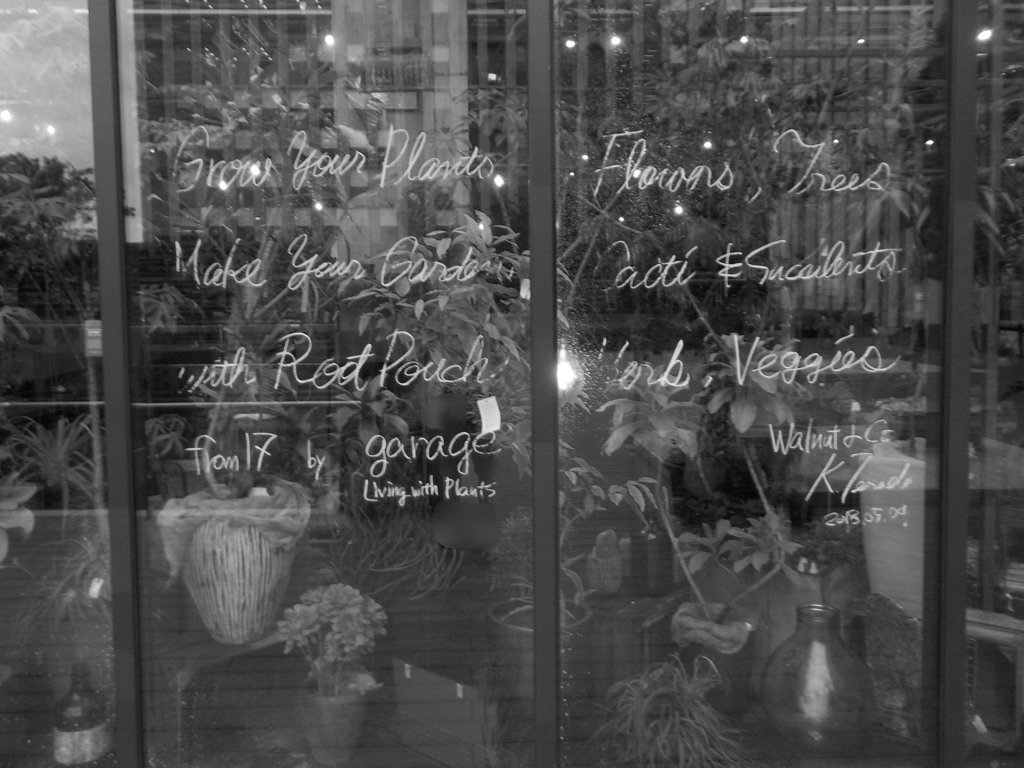 Grow Your Plants
Make Your Garden
with Root Pouch
from 17 by garage
Living with Plants
Flowers, Trees
Cacti & Succulents
Herb, Veggies
Walnut & Co
K. Terada